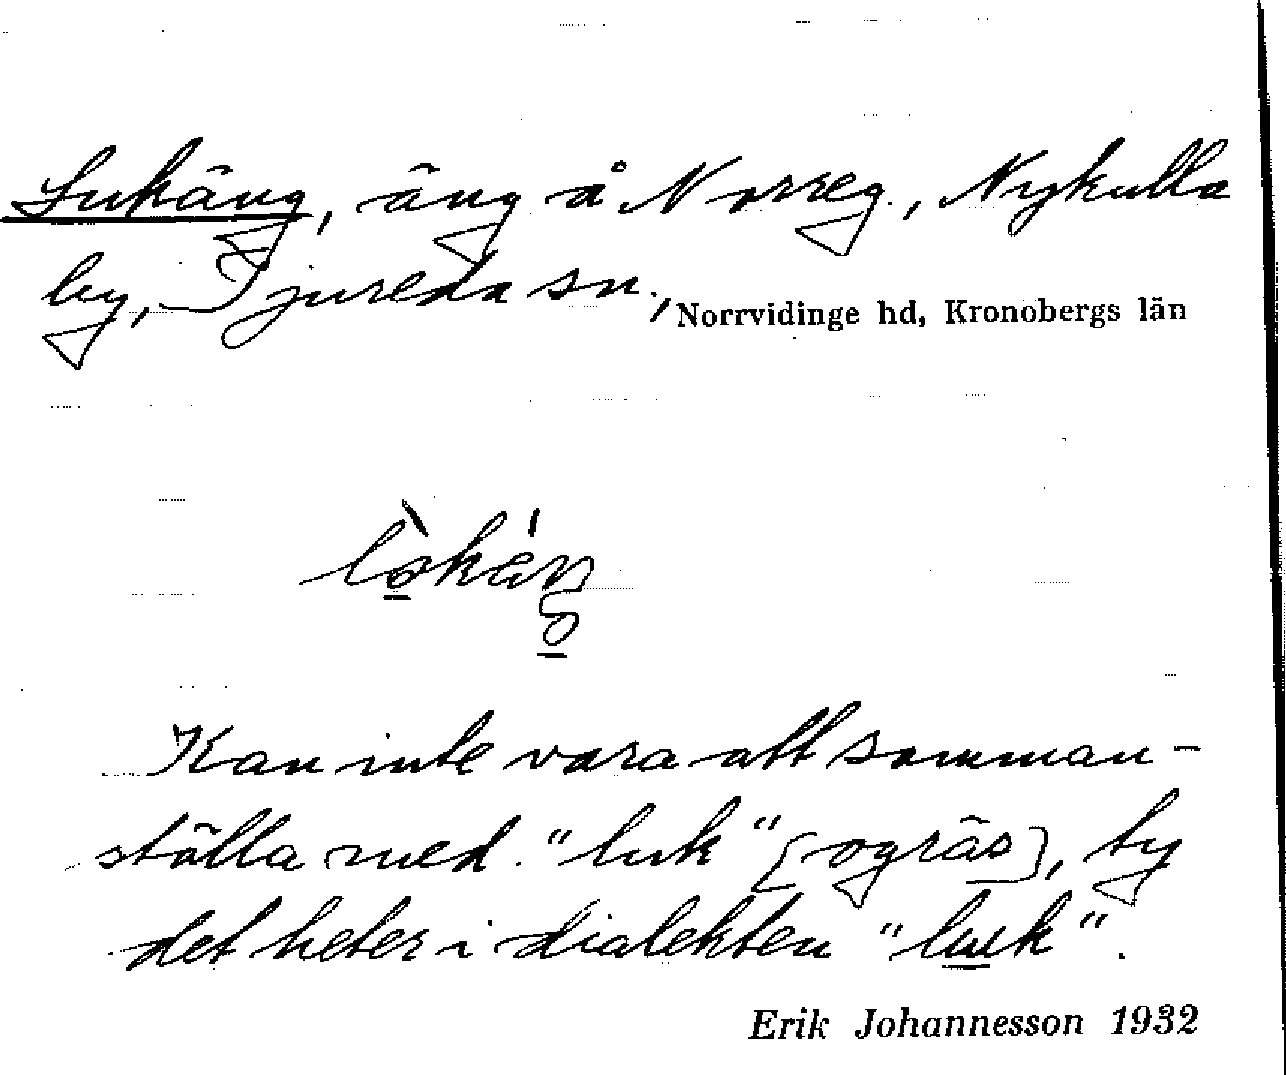 Lukäng, äng å Norreg., Nykulla
by, Tjureda sn., Norrvidinge hd, Kronobergs län
Kan inte vara att samman-
ställa med "luk" [ogräs], ty
det heter i dialekten "luk".
Erik Johannesson 1932